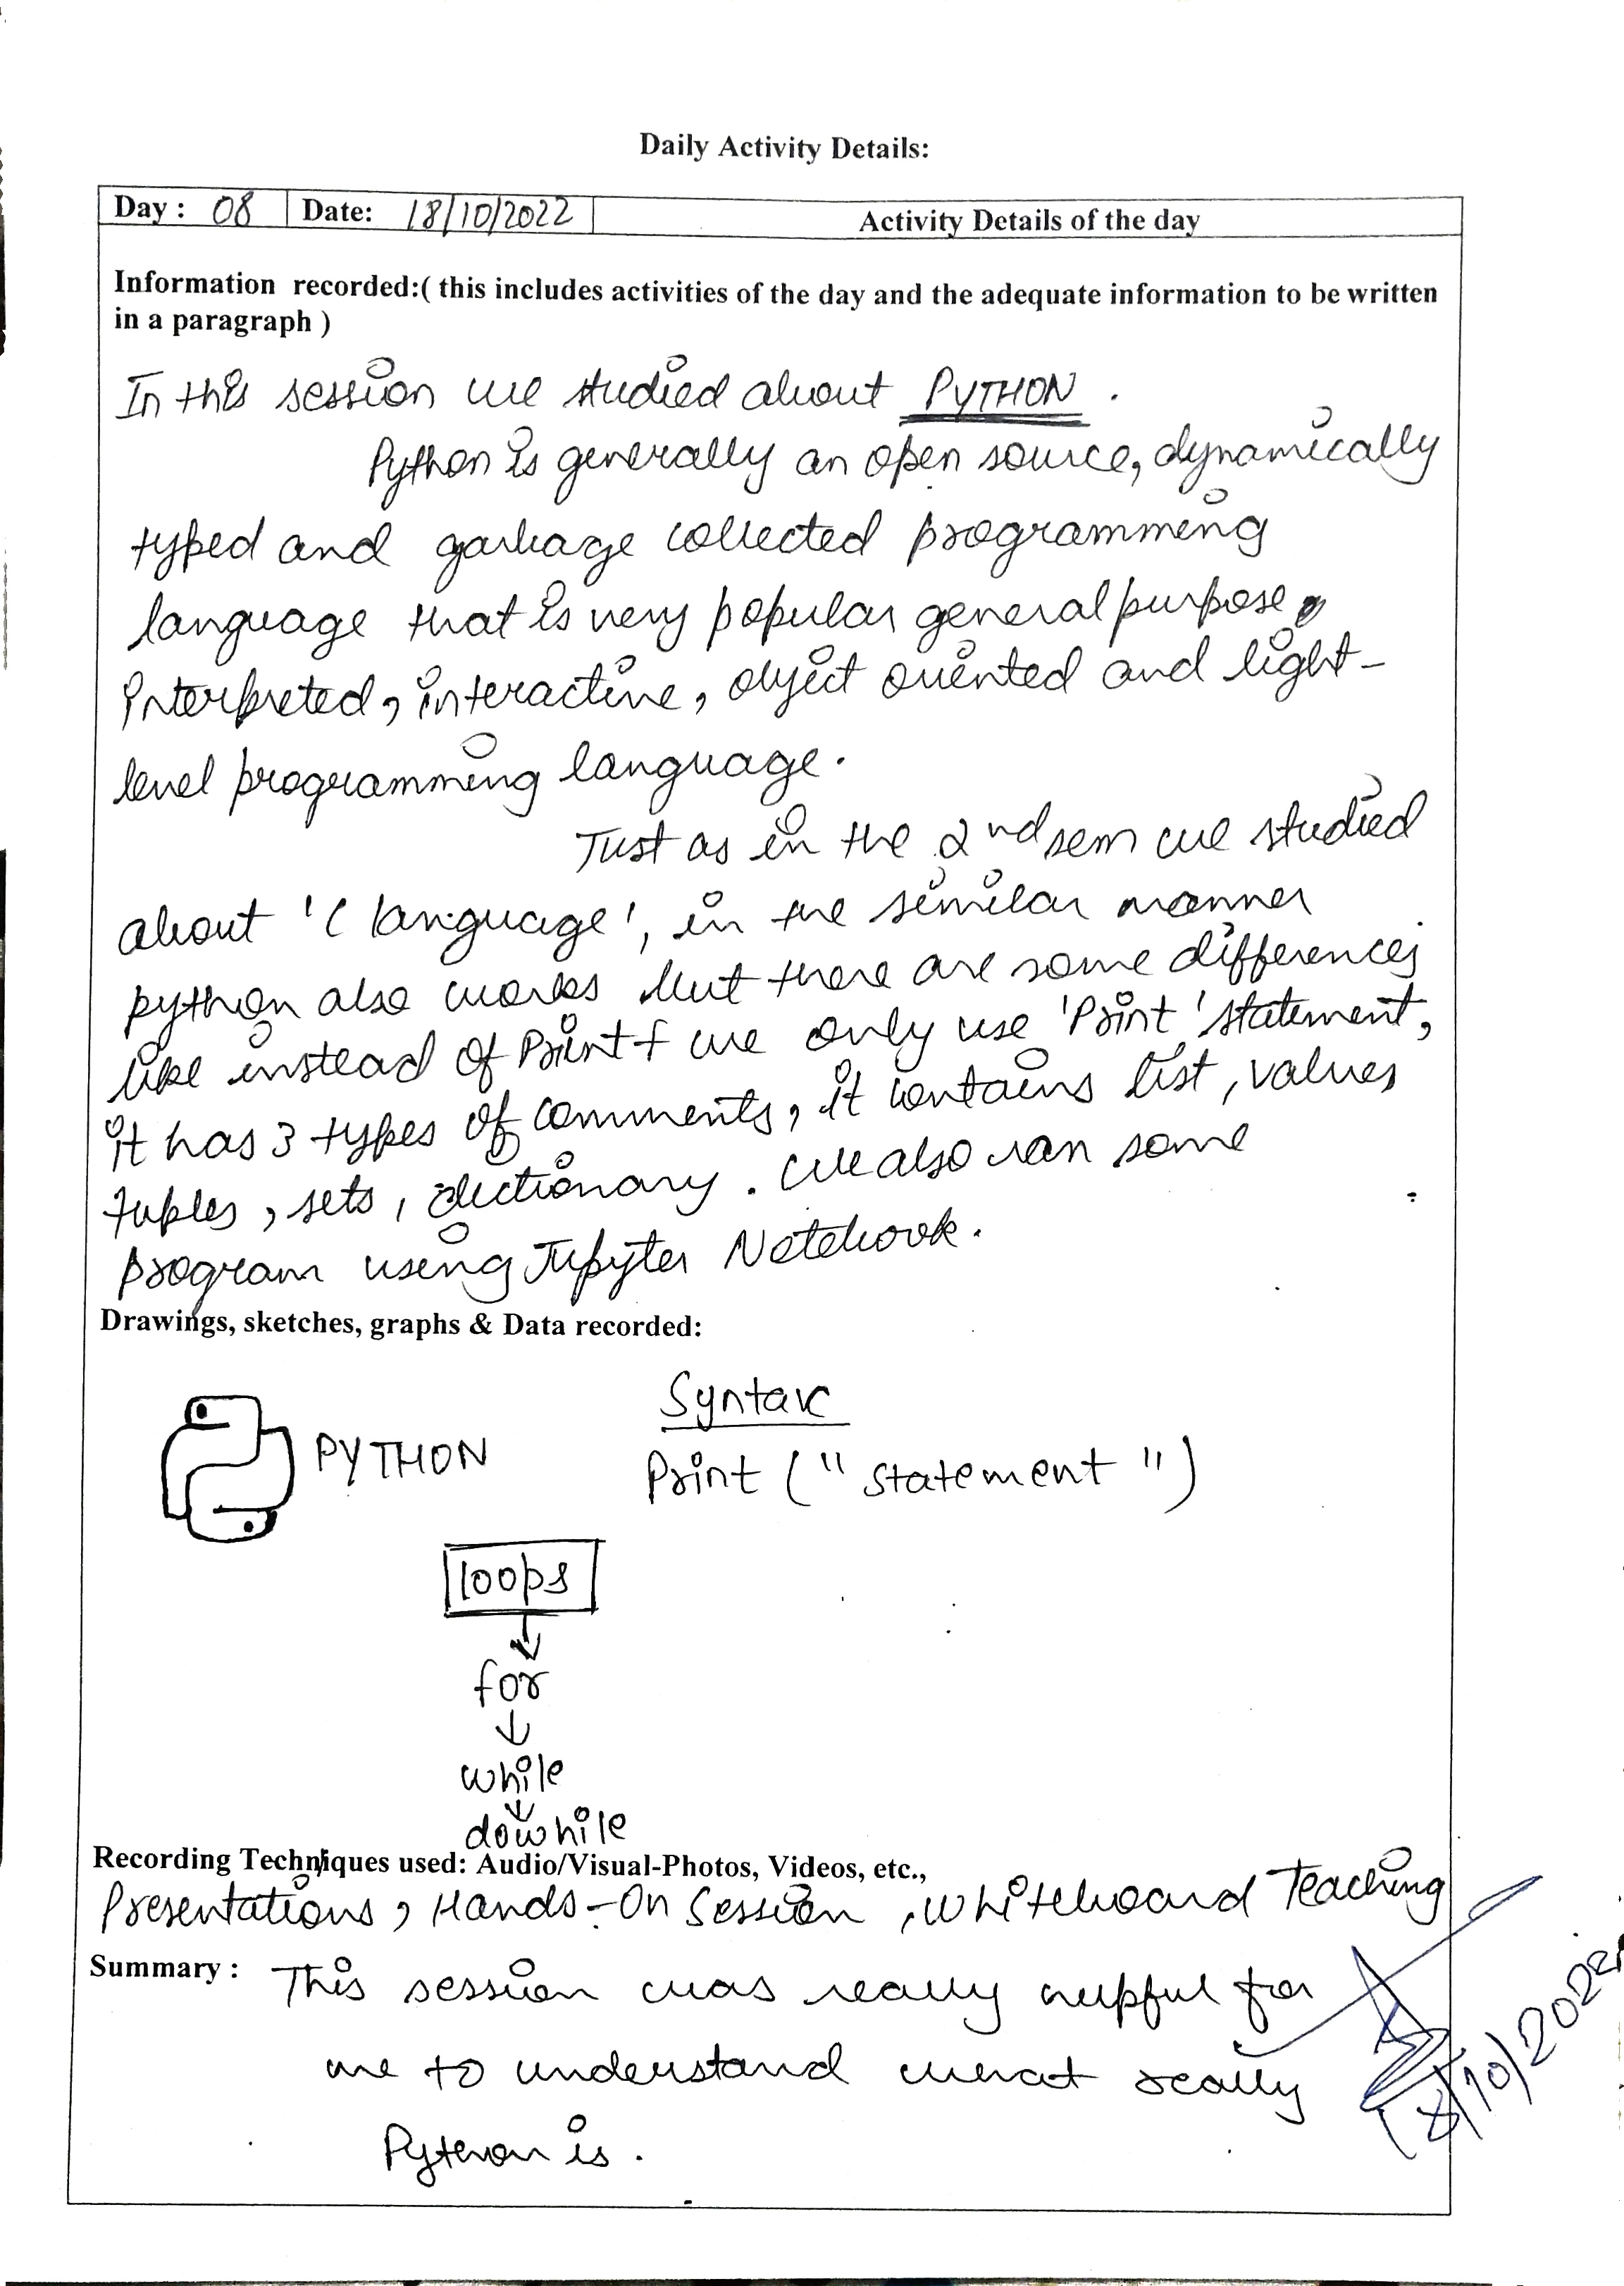 Daily Activity Details:
Day : 08 Date: 18/10/2022 Activity Details of the day
Information recorded:( this includes activities of the day and the adequate information to be written
in a paragraph )
In this session we studied about PYTHON .
Python is generally an open source, dynamically
typed and garbage collected programming
language that is very popular general purpose,
interpreted, interactive, object oriented and light-
level programming language.
Just as in the 2nd sem we studied
about 'C language', in the similar manner
python also works but there are some differences
like instead of Printf we only use 'Print' statement,
it has 3 types of comments, it contains list, values
tuples, sets, dictionary. We also ran some
program using Jupyter Notebook.
Drawings, sketches, graphs & Data recorded:
PYTHON
Syntax
Print (" statement ")
loops
for
while
dowhile
Recording Techniques used: Audio/Visual-Photos, Videos, etc.,
Presentations, Hands-On Session, Whiteboard Teaching
Summary : This session was really helpful for
me to understand what really
Python is.
18/10/2022